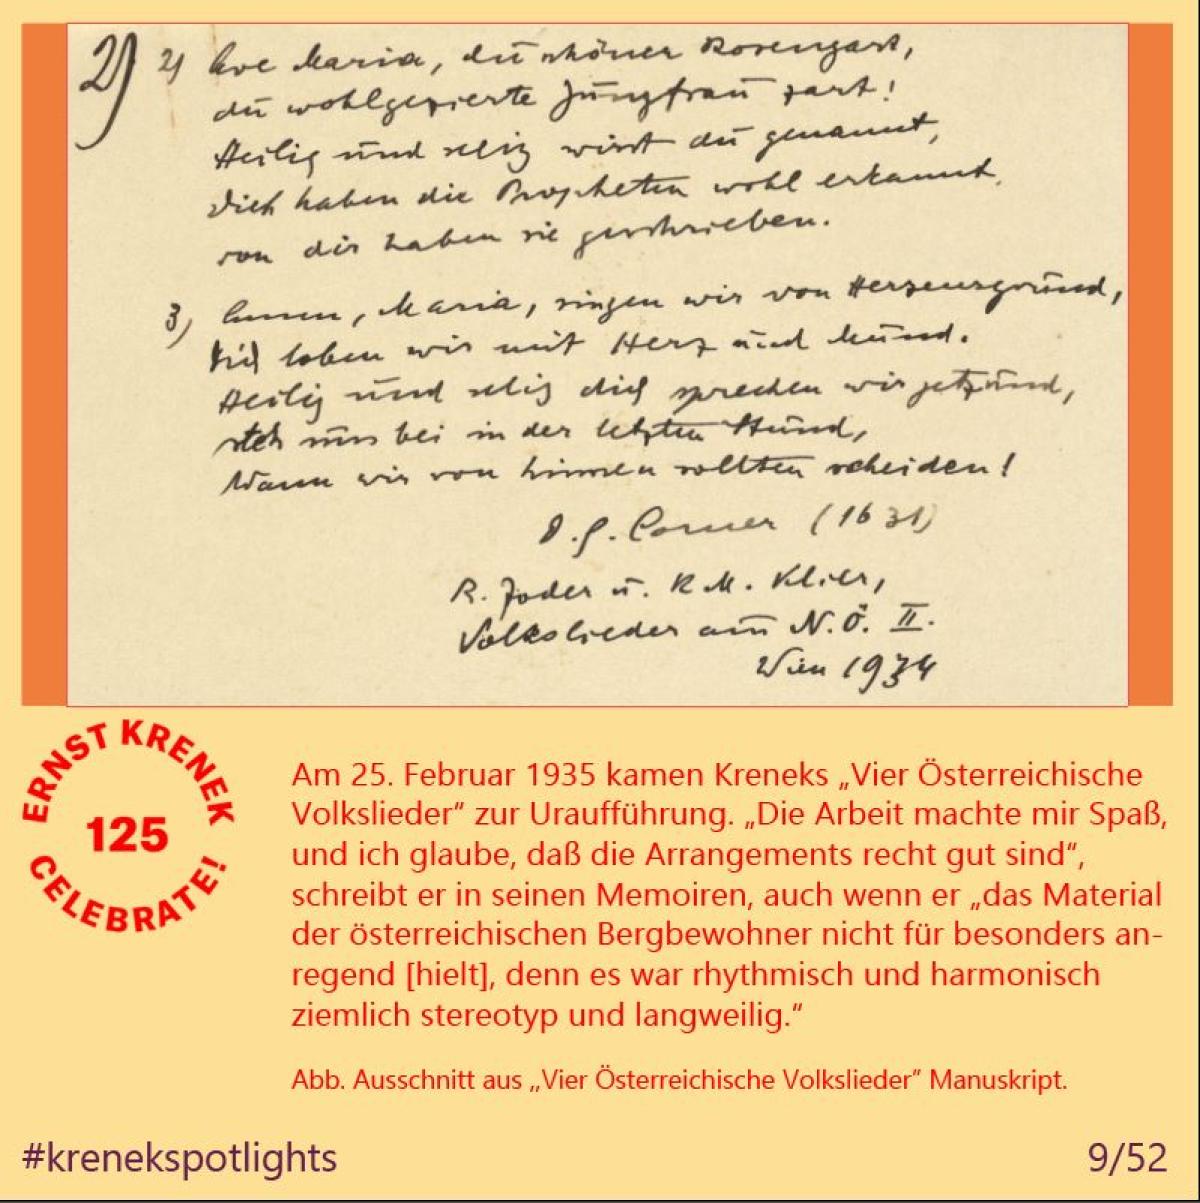 2) 2) Ave Maria, du schöner Rosengart,
du wohlgezierte Jungfrau zart!
Heilig und selig wirst du genannt,
Dich haben die Propheten wohl erkannt,
von dir haben sie geschrieben.
3) Amen, Maria, singen wir von Herzensgrund,
Dich loben wir mit Herz und Mund.
Heilig und selig dich sprechen wir jetzund,
steh uns bei in der letzten Stund,
Wann wir von hinnen sollten scheiden!
D. G. Corner (1631)
R. Zoder u. R. M. Klier,
Volkslieder aus N. Ö. II.
Wien 1934
ERNST KRENEK
125
CELEBRATE!
Am 25. Februar 1935 kamen Kreneks „Vier Österreichische
Volkslieder“ zur Uraufführung. „Die Arbeit machte mir Spaß,
und ich glaube, daß die Arrangements recht gut sind“,
schreibt er in seinen Memoiren, auch wenn er „das Material
der österreichischen Bergbewohner nicht für besonders an-
regend [hielt], denn es war rhythmisch und harmonisch
ziemlich stereotyp und langweilig.“
Abb. Ausschnitt aus „Vier Österreichische Volkslieder” Manuskript.
#krenekspotlights
9/52